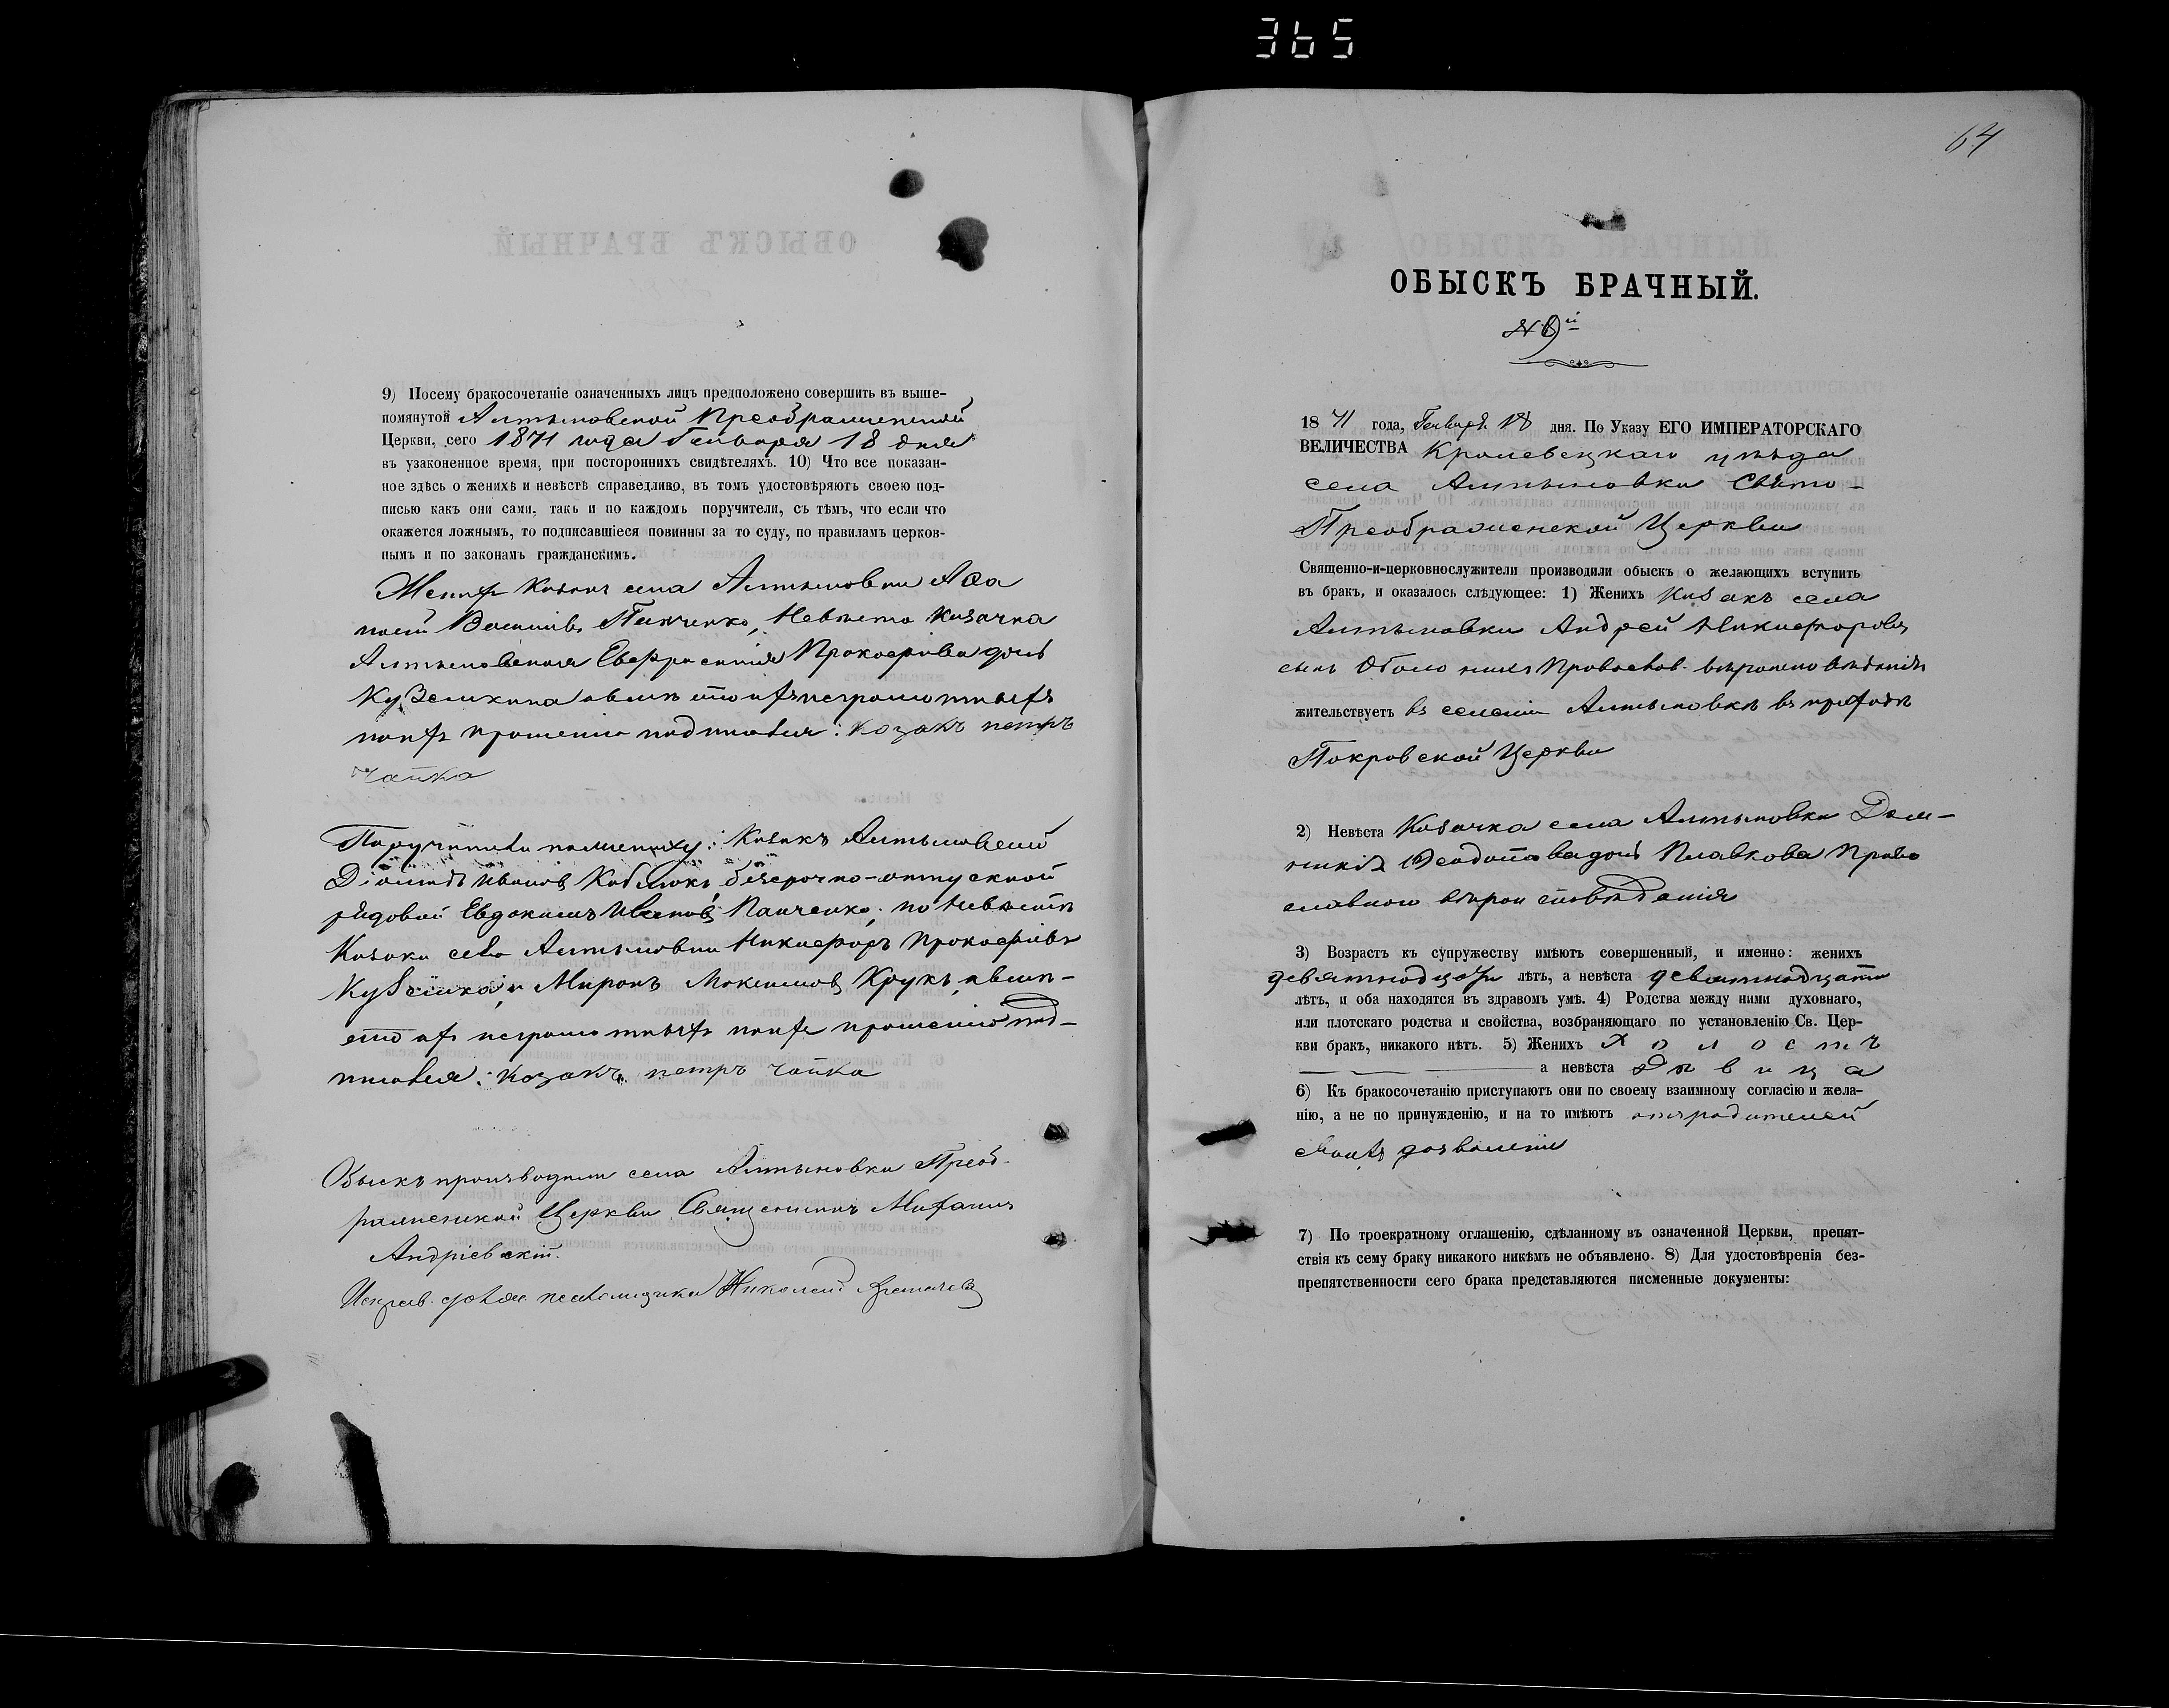 365
9) Посему бракосочетаніе означенныхъ лицъ предположено совершить въ выше-
помянутой Алтыновской Преображенской
Церкви, сего 1871 года Генваря 18 дня
въ узаконенное время, при постороннихъ свидѣтеляхъ. 10) Что все показан-
ное здѣсь о женихѣ и невѣстѣ справедливо, въ томъ удостовѣряютъ своею под-
писью какъ они сами, такъ и по каждомъ поручители, съ тѣмъ, что если что
окажется ложнымъ, то подписавшіеся повинны за то суду, по правиламъ церков-
нымъ и по законамъ гражданскимъ.
Женихъ Козакъ села Алтыновки
Панченко, Невѣста Козачка
Алтыновская Евфросинія Прокофіева дочь
Кузьмкина а вмѣсто ихъ неграмотныхъ
по ихъ прошенію подписался: Козакъ петръ
чапка
Поручители по жениху: Козакъ Алтыновскій
Діомидъ Ивановъ безсрочно-отпускной
рядовой Евдокимъ Ивановъ Панченко, по Невѣстѣ
Козаки села Алтыновки Никифоръ Прокофіевъ
и Миронъ Максимовъ Крукъ, а вмѣ-
сто ихъ неграмотныхъ по ихъ прошенію под-
писался: козакъ петръ чапка
Обыскъ производили села Алтыновки Преоб-
раженской Церкви Священникъ Михаилъ
Андріевскій.
Исправ. должн. псаломщика Николай
64
ОБЫСКЪ БРАЧНЫЙ.
№ 9й
1871 года, Генваря 18 дня. По Указу ЕГО ИМПЕРАТОРСКАГО
ВЕЛИЧЕСТВА Кролевецкаго уѣзда
села Алтыновки Свято-
Преображенской Церкви
Священно-и-церковнослужители производили обыскъ о желающихъ вступить
въ бракъ, и оказалось слѣдующее: 1) Женихъ Козакъ села
Алтыновки Андрей Никифоровъ
сынъ Правосл. вѣроисповѣданія
жительствуетъ въ селеніи Алтыновкѣ въ приходѣ
Покровской Церкви
2) Невѣста Козачка села Алтыновки Дом-
никія Ѳеодотова дочь Плавкова Право
славного вѣроисповѣданія
3) Возрастъ къ супружеству имѣютъ совершенный, и именно: женихъ
девятнодцати лѣтъ, а невѣста девятнодцати
лѣтъ, и оба находятся въ здравомъ умѣ. 4) Родства между ними духовнаго,
или плотскаго родства и свойства, возбраняющаго по установленію Св. Цер-
кви бракъ, никакого нѣтъ. 5) Женихъ Холостъ
а невѣста Дѣвица
6) Къ бракосочетанію приступаютъ они по своему взаимному согласію и жела-
нію, а не по принужденію, и на то имѣютъ отъ родителей
своихъ дозволеніе
7) По троекратному оглашенію, сдѣланному въ означенной Церкви, препят-
ствія къ сему браку никакого никѣмъ не объявлено. 8) Для удостовѣренія без-
препятственности сего брака представляются писменные документы: